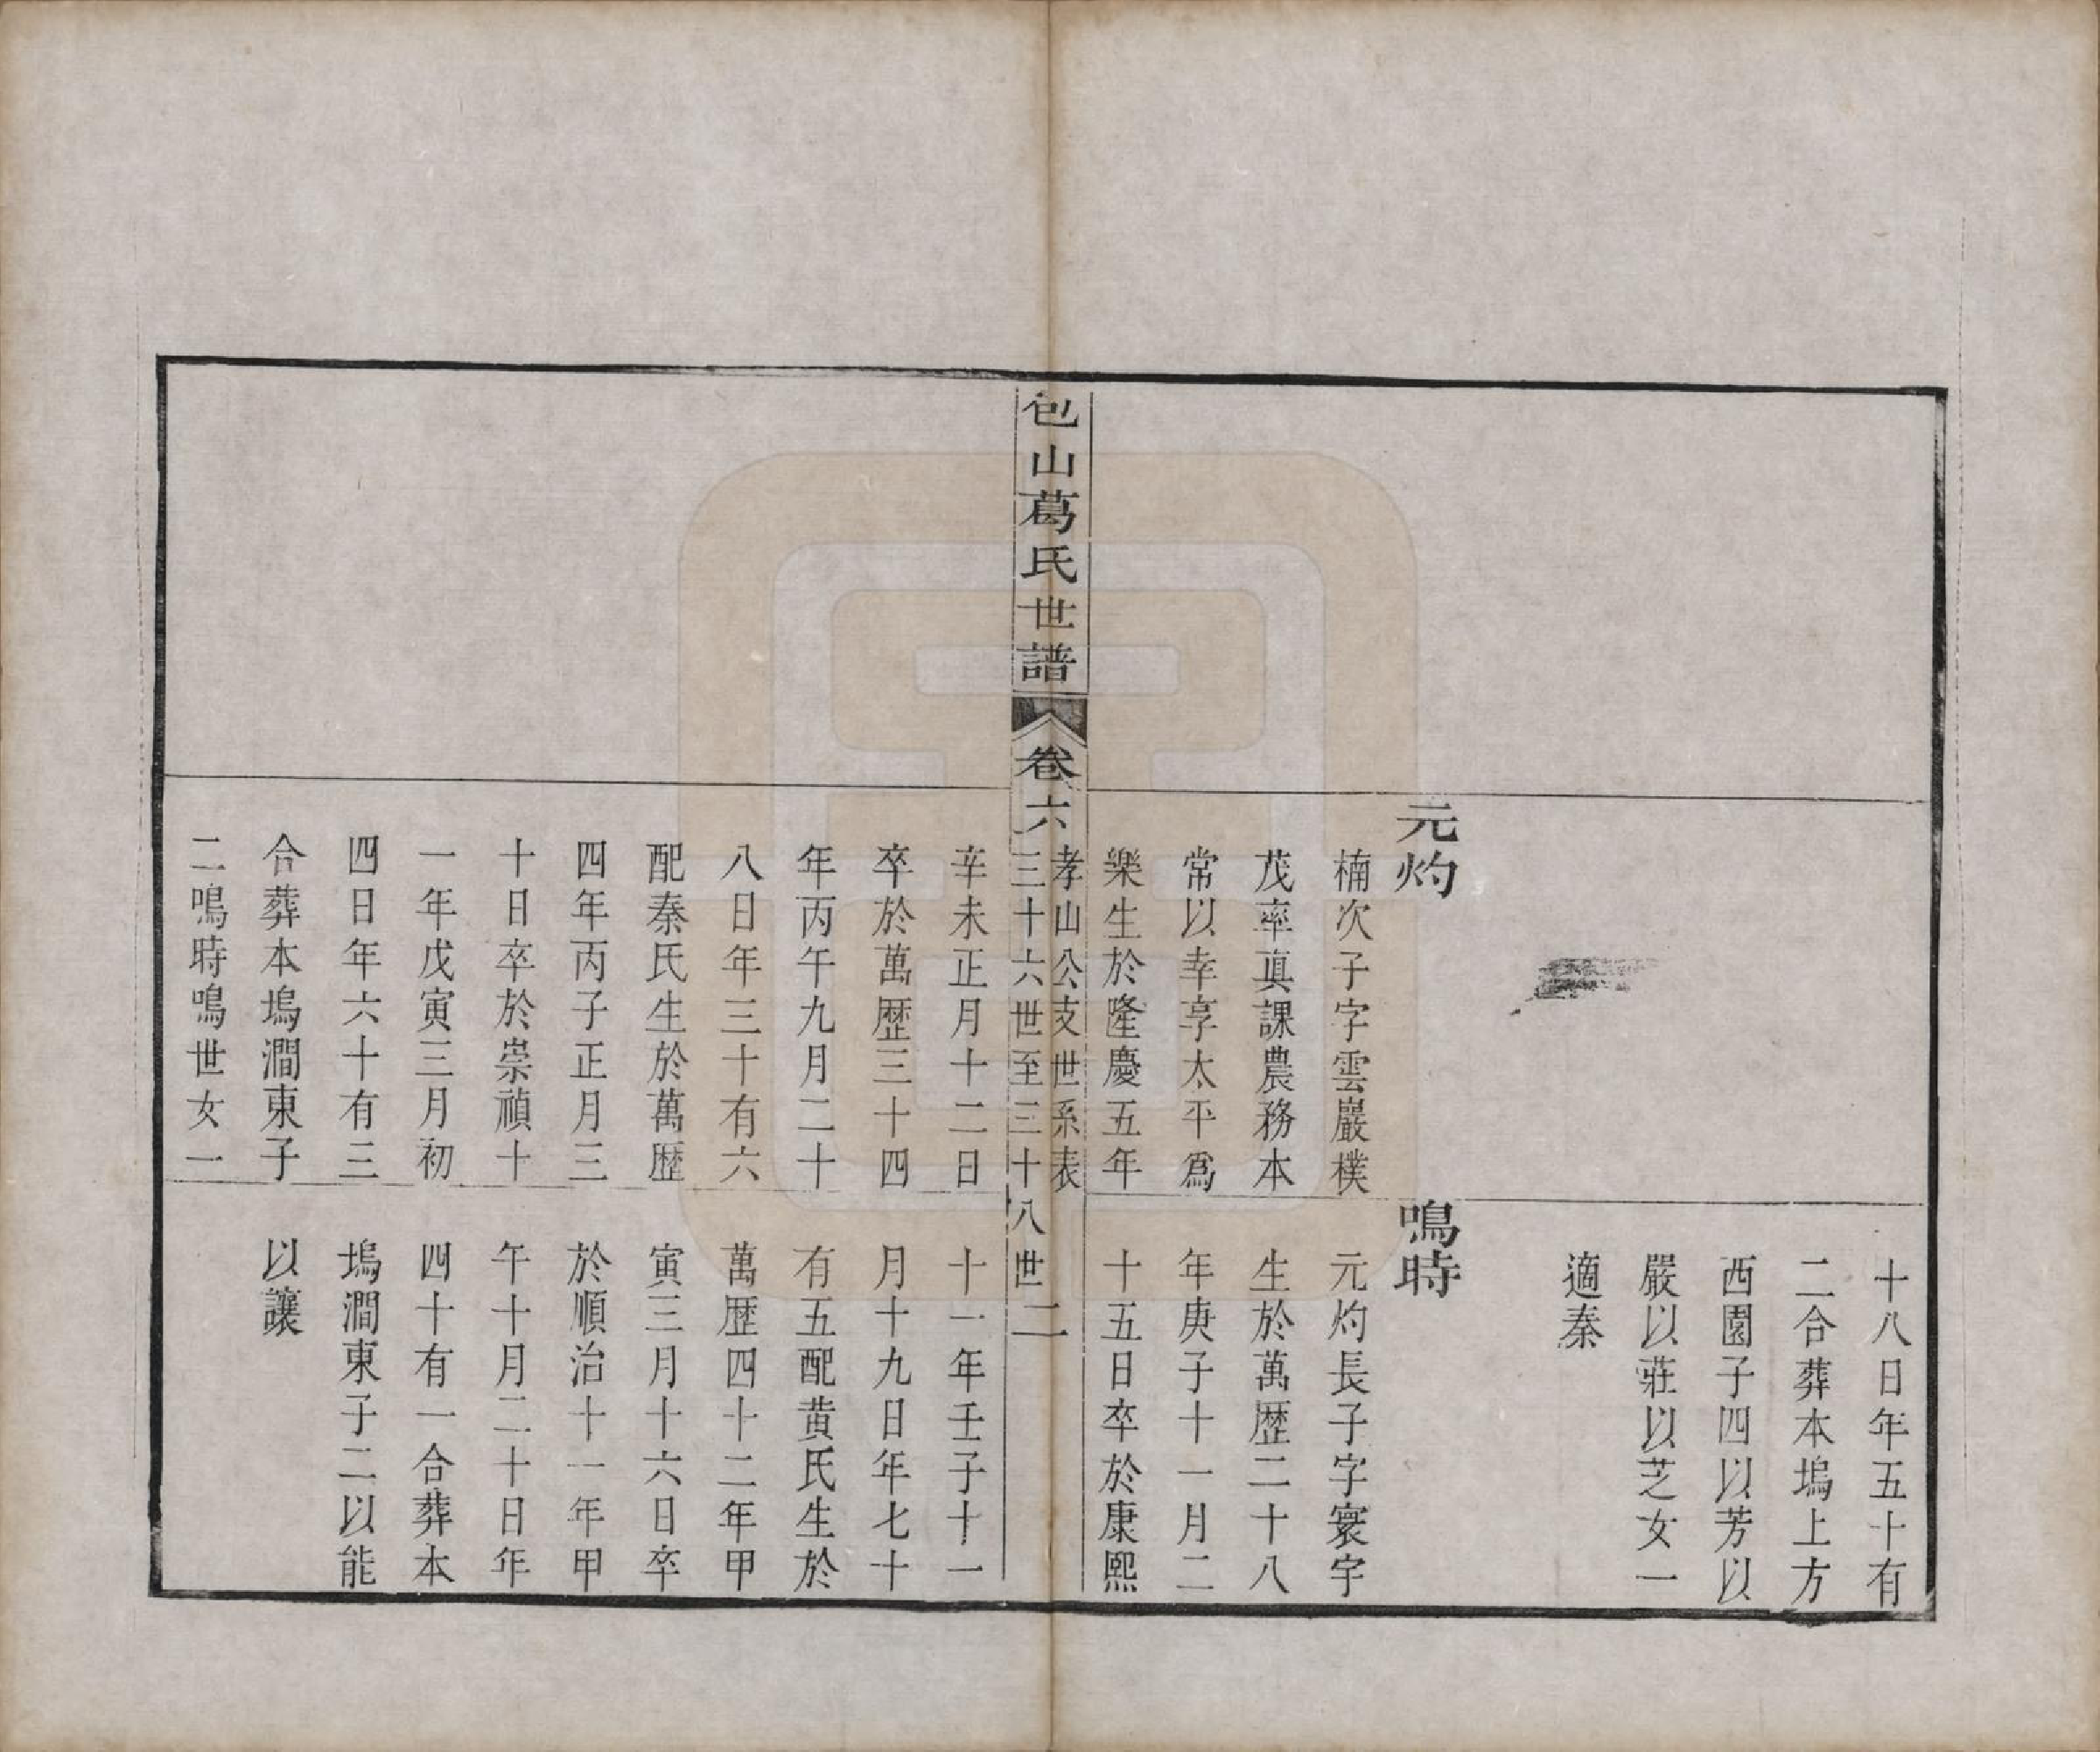 十八日年五十有
二合葬本塢上方
西園子四以芳以
嚴以莊以芝女一
適秦
元灼
楠次子字雲巖樸
茂率眞課農務本
常以幸享太平爲
樂生於隆慶五年
鳴時
元灼長子字寰宇
生於萬歷二十八
年庚子十一月二
十五日卒於康熙
包山葛氏世譜
卷六
孝山公支世系表
三十六世至三十八世
二
辛未正月十二日
卒於萬歷三十四
年丙午九月二十
八日年三十有六
配秦氏生於萬歷
四年丙子正月三
十日卒於崇禎十
一年戊寅三月初
四日年六十有三
合葬本塢澗東子
二鳴時鳴世女一
十一年壬子十一
月十九日年七十
有五配黄氏生於
萬歷四十二年甲
寅三月十六日卒
於順治十一年甲
午十月二十日年
四十有一合葬本
塢澗東子二以能
以讓